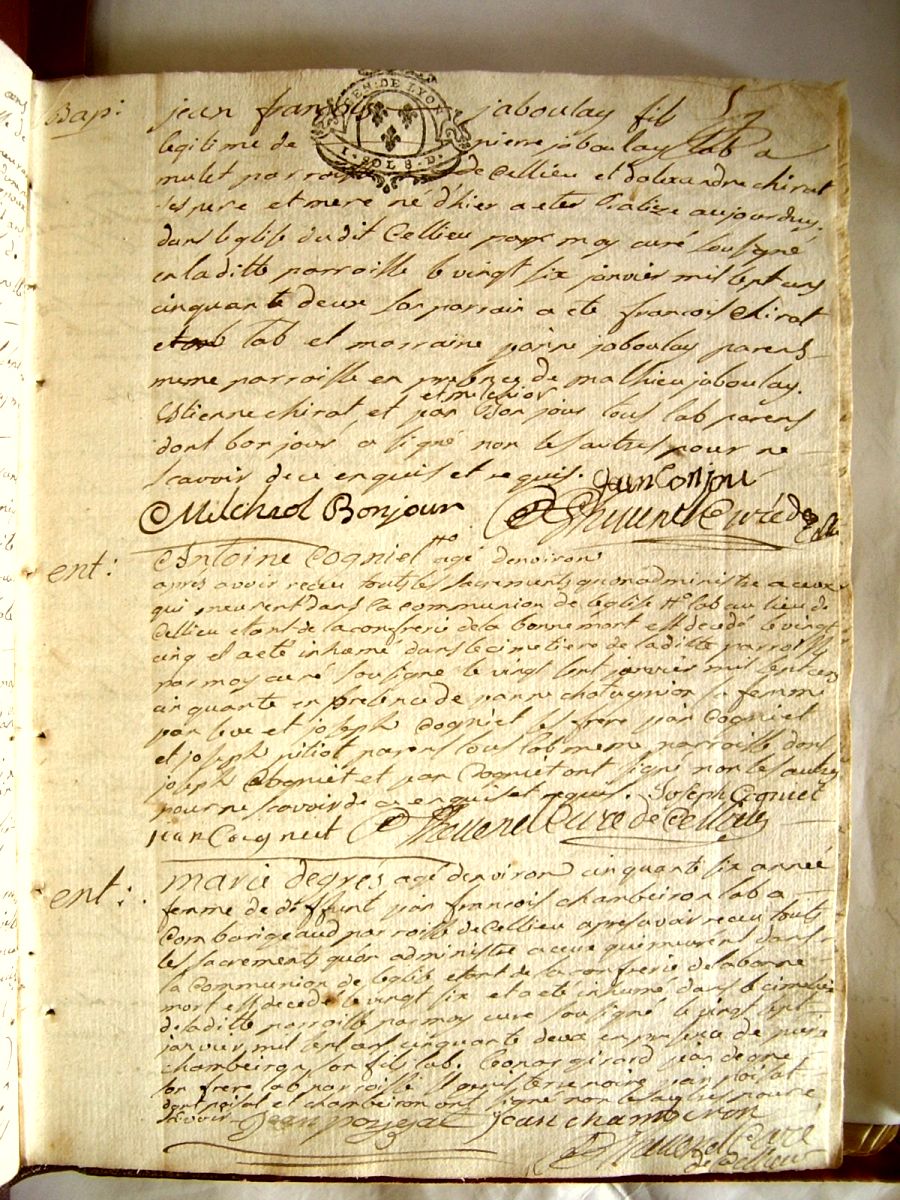 5
GEN·DE LYON
1·SOL 8·D·
Bap: jean françois jaboulay fils
legitime de pierre jaboulay lab a
mulet parroisse de Cellieu et d'alexandre chirat
ses pere et mere né d'hier a eté Batize aujourduy
dans leglise dudit Cellieu par moy curé sousigné
en laditte parroisse le vingt six janvier mil sept cens
cinquante deux son parrain a eté françois chirat
lab et marraine janne jaboulay parens
meme parroisse en presence de mathieu jaboulay
Estienne chirat, et jean Bonjour tous lab parens
et milchior
dont bonjour a signé non les autres pour ne
scavoir de ce enquis et requis. Jean Bonjour
Milchaol Bonjour Thevenet Curé de
ent: Antoine Cogniet agé denviron
apres avoir receu tous les sacrements quon administre a ceux
qui meurent dans la communion de leglise lab au lieu de
Cellieu etant de la confrerie de la bonne mort est decedé le vingt
cinq et a eté inhumé dans le cimetiere de laditte parroisse
par moy curé sousigné le vingt sept janvier mil sept cens
cinquante en presence de janne chatagnion sa femme
et joseph Cogniet ses frere jean Cogniet
et joseph pitiot parens tous lab meme parroisse dont
joseph Cogniet et jean Cogniet ont signé non les autres
pour ne scavoir de ce enquis et requis. Joseph Cogniet
jean Cogniet Thevenet Curé de Cellieu
ent: marie degres agé denviron cinquante six année
femme de deffunt jean françois chambeiron lab a
Combarigeaud parroisse de Cellieu apres avoir receu touts
les sacrements quon administre a ceux qui meurent dans
la Communion de leglise etant de la confrerie de la bonne
mort est decedé le vingt six et a eté inhumé dans le cimetiere
de laditte parroisse par moy curé sousigné le vingt sept
janvier mil sept cens cinquante deux en presence de
chambeiron son fils lab. girard jean degre
son frere lab parroisse jean poisat
dont poisat et chambeiron ont signé non les autres pour ne
scavoir jean chambeiron
Thevenet Curé
de Cellieu